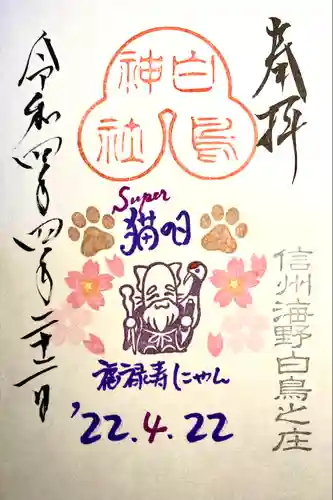 奉拝
白鳥
神社
信州海野白鳥之庄
Super
猫の日
福禄寿にゃん
'22.4.22
令和四年四月二十二日